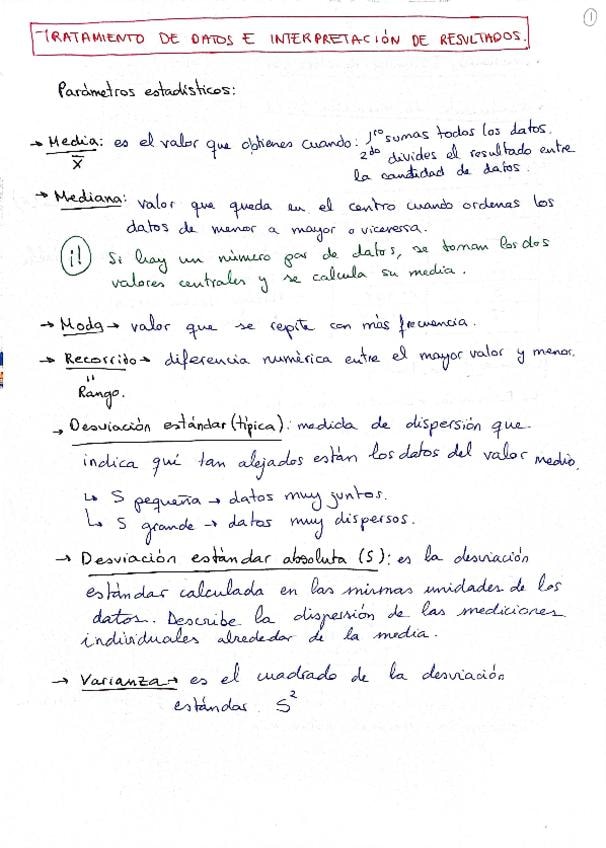 1
TRATAMIENTO DE DATOS E INTERPRETACIÓN DE RESULTADOS.
Parámetros estadísticos:
→ Media: es el valor que obtienes cuando: 1ro sumas todos los datos.
x̄ 2do divides el resultado entre
la cantidad de datos.
→ Mediana: valor que queda en el centro cuando ordenas los
datos de menor a mayor o viceversa.
¡! Si hay un número par de datos, se toman los dos
valores centrales y se calcula su media.
→ Moda → valor que se repite con más frecuencia.
→ Recorrido → diferencia numérica entre el mayor valor y menor.
"
Rango.
→ Desviación estándar (típica): medida de dispersión que
indica qué tan alejados están los datos del valor medio.
↳ S pequeña → datos muy juntos.
↳ S grande → datos muy dispersos.
→ Desviación estándar absoluta (S): es la desviación
estándar calculada en las mismas unidades de los
datos. Describe la dispersión de las mediciones
individuales alrededor de la media.
→ Varianza → es el cuadrado de la desviación
estándar. S²